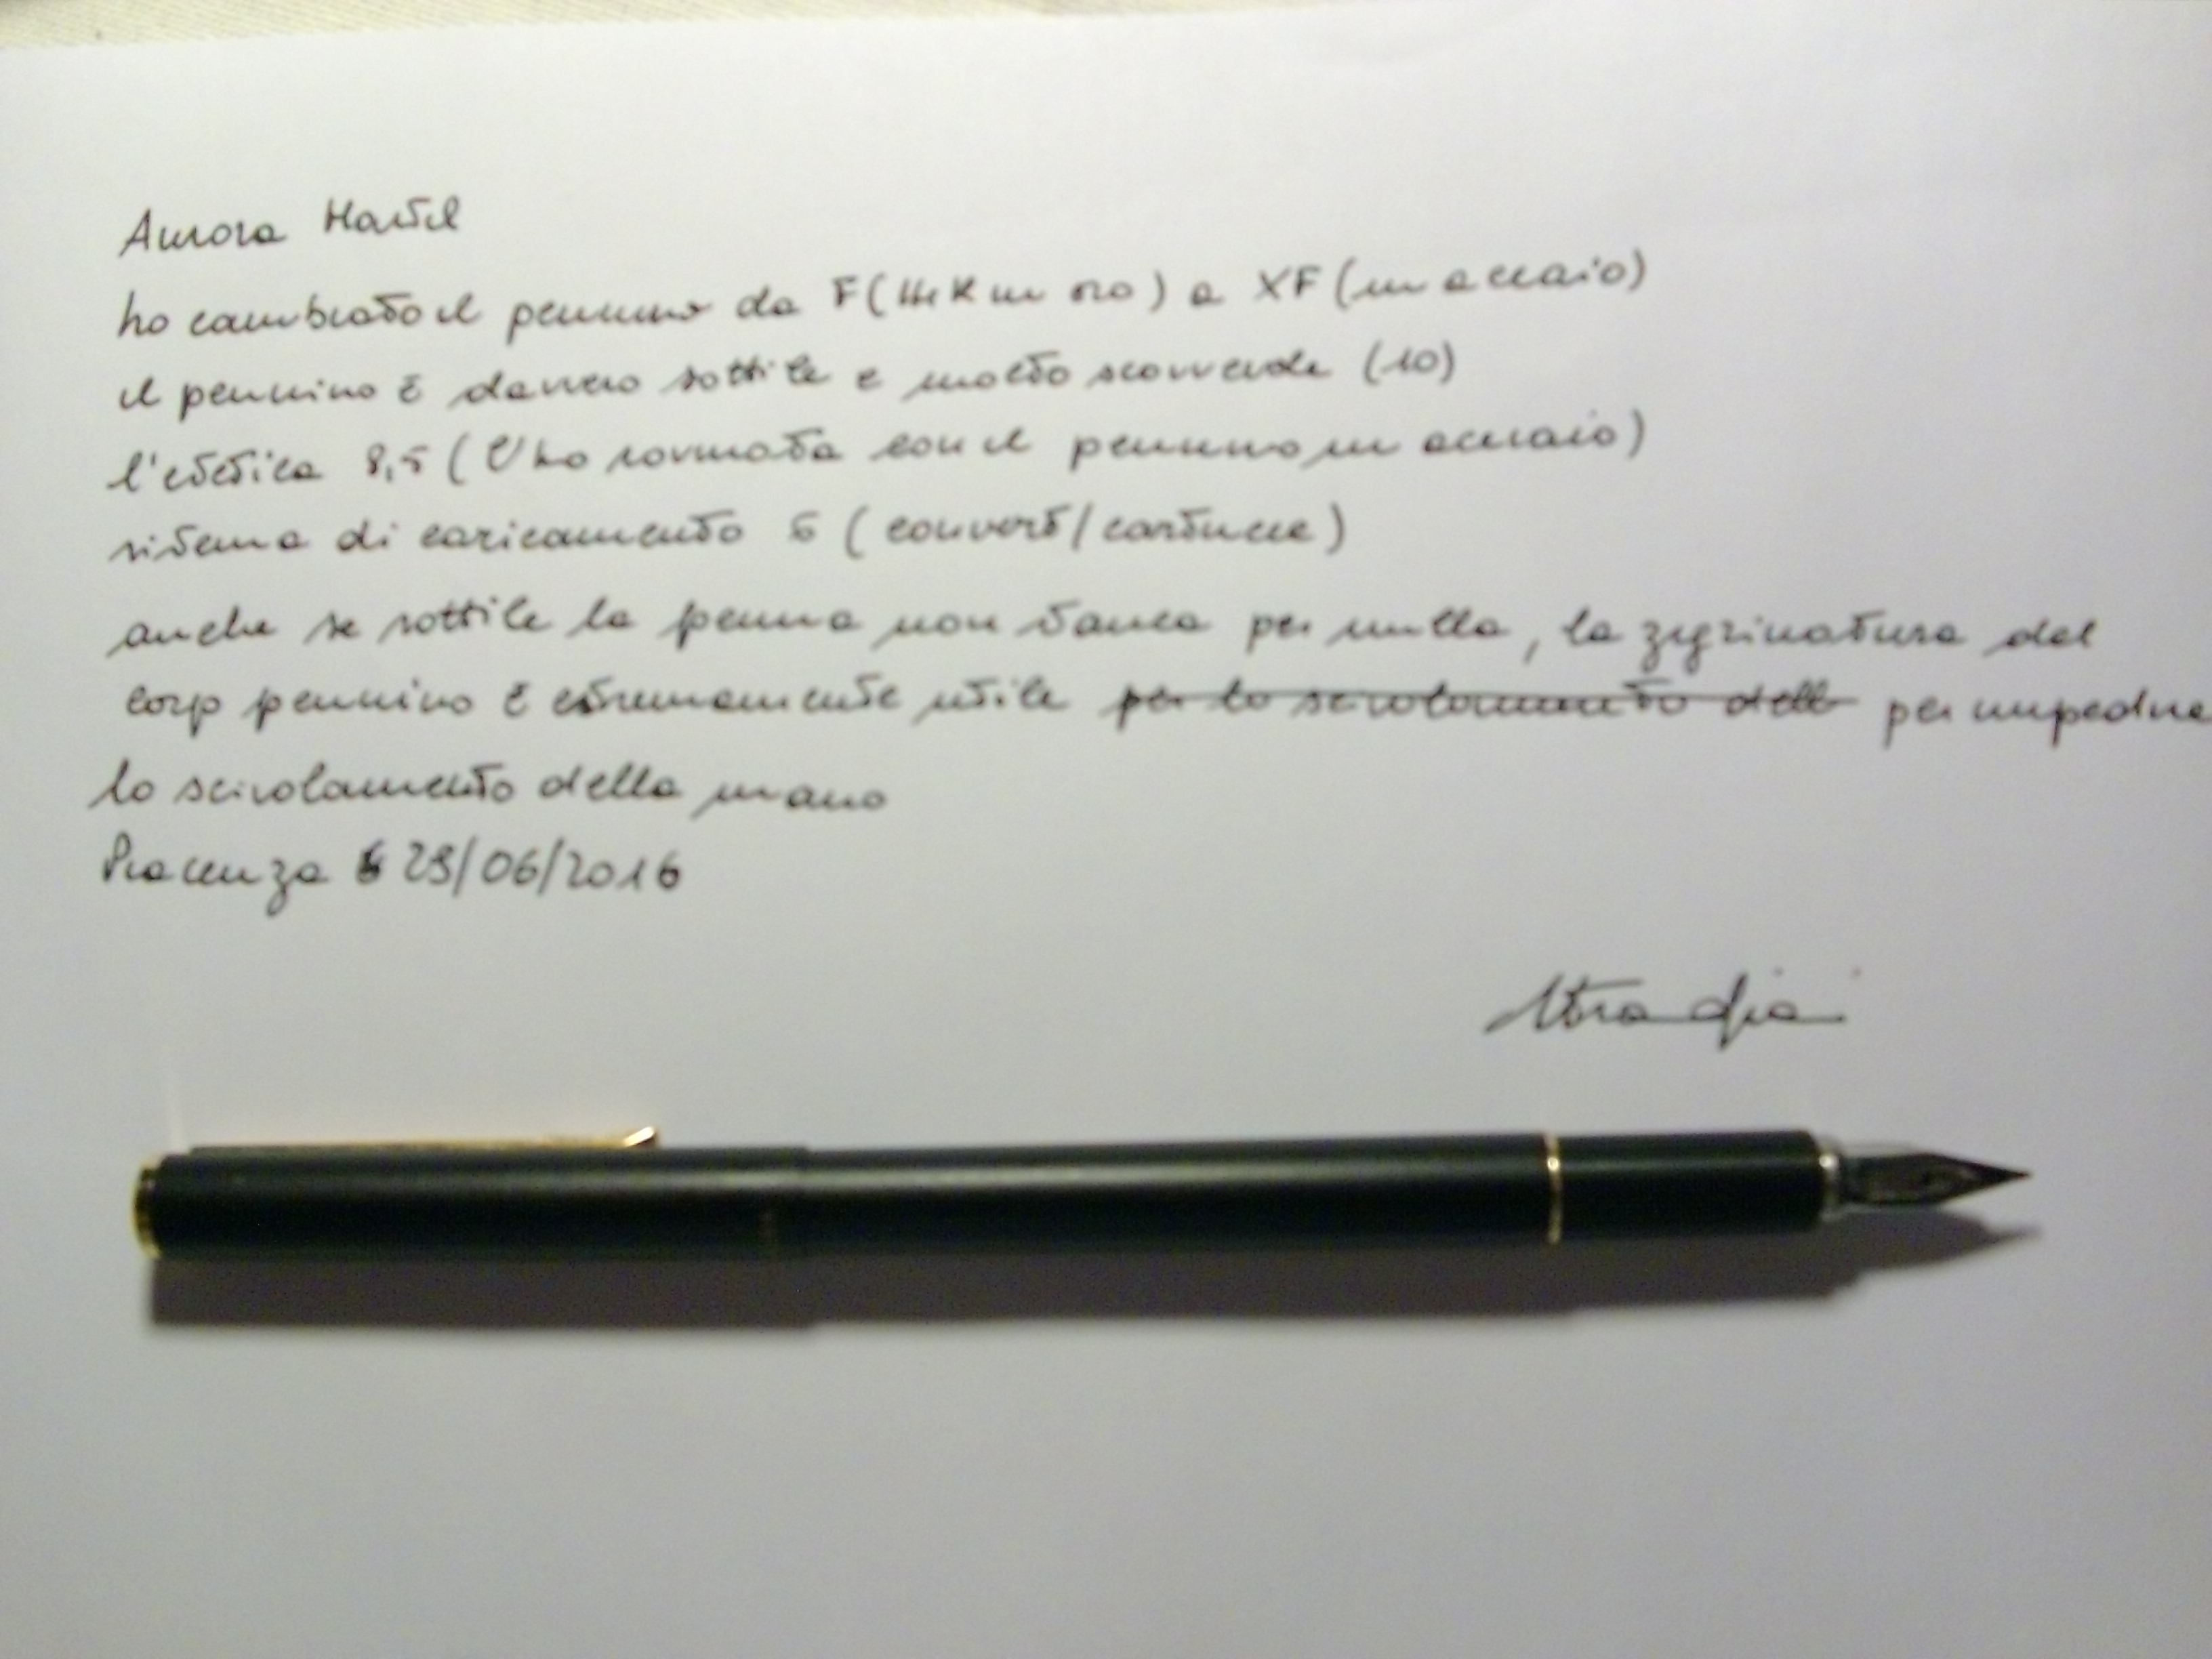 Aurora Hastil
ho cambiato il pennino da F (14K in oro) a XF (in acciaio)
il pennino è davvero sottile e molto scorrevole (10)
l'estetica 8,5 (l'ho rovinata con il pennino in acciaio)
sistema di caricamento 6 (convert/cartucce)
anche se sottile la penna non stanca per nulla, la zigrinatura del
corp pennino è estremamente utile per lo scivolamento dell per impedire
lo scivolamento della mano
Piacenza 29/06/2016